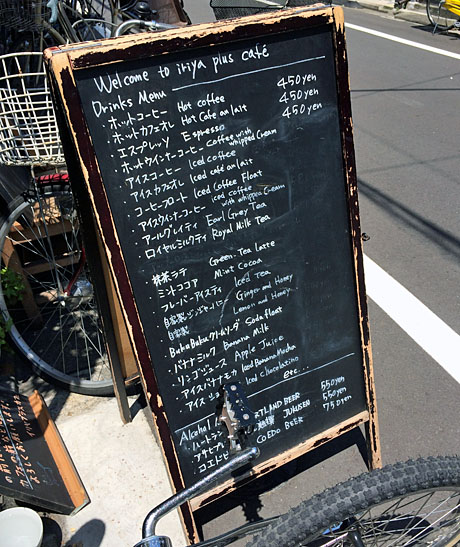 Welcome to iriya plus café
Drinks Menu
・ホットコーヒー Hot coffee 450yen
・ホットカフェオレ Hot Cafe au lait 450yen
・エスプレッソ Espresso 450yen
・ホットウインナーコーヒー Coffee with whipped cream
・アイスコーヒー Iced coffee
・アイスカフェオレ Iced café au lait
・コーヒーフロート Iced Coffee Float
・アイスウインナーコーヒー Iced Coffee with whipped Cream
・アールグレイティ Earl Grey Tea
・ロイヤルミルクティ Royal Milk Tea
・抹茶ラテ Green-Tea latte
・ミントココア Mint Cocoa
・フレーバーアイスティ Iced Tea
・自家製ジンジャーハニー Ginger and Honey
・自家製 Lemon and Honey
・BukuBukuクリームソーダ Soda float
・バナナミルク Banana Milk
・リンゴジュース Apple Juice
・アイスバナナモカ Iced Banana Mocha
・アイス Iced Chocolatino
etc...
Alcohol
・ハートラン RTLAND BEER 550yen
・アサヒ JUKUSEN 550yen
・コエド COEDO BEER 750yen